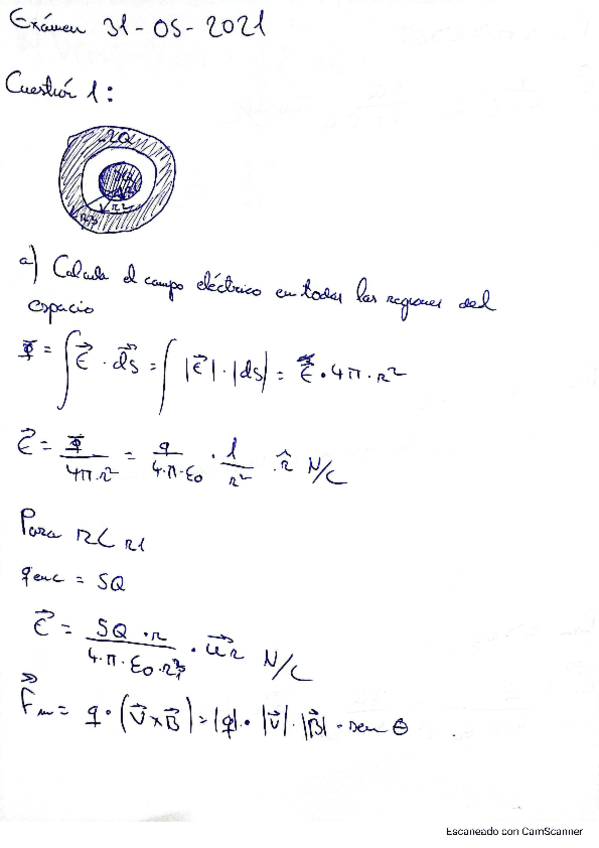 Exámen 31-05-2021
Cuestión 1:
-2Q
5Q
R2
R3
a) Calcula el campo eléctrico en todas las regiones del
espacio
Φ = ∫ E⃗ · ds⃗ = ∫ |E⃗| · |ds| = E⃗ · 4π · r²
E⃗ = Φ / 4π·r² = q / 4·π·ε₀ · 1 / r² · r̂ N/C
Para r < R1
qenc = 5Q
E⃗ = 5Q · r / 4·π·ε₀·r₁³ · u⃗r N/C
F⃗m = q · (v⃗ × B⃗) = |q| · |v⃗| · |B⃗| · sen θ
Escaneado con CamScanner